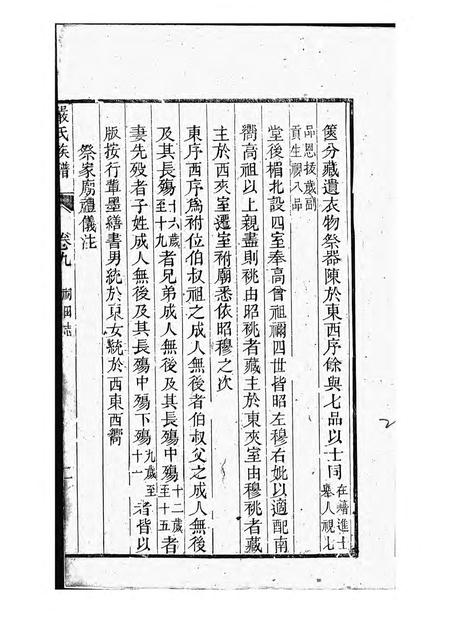 篋分藏遺衣物祭器陳於東西序餘與七品以士同在籍進士舉人視七
品恩拔歲副貢生視八品
堂後楣北設四室奉高曾祖禰四世皆昭左穆右妣以適配南
嚮高祖以上親盡則祧由昭祧者藏主於東夾室由穆祧者藏
主於西夾室遷室祔廟悉依昭穆之次
東序西序為祔位伯叔祖之成人無後者伯叔父之成人無後
及其長殤十六歲至十九者兄弟成人無後及其長殤中殤十二歲至十五者
妻先歿者子姓成人無後及其長殤中殤下殤九歲至十一者皆以
版按行輩墨繕書男統於東女統於西東西嚮
祭家廟禮儀注
嚴氏族譜
卷九
祠田誌
二